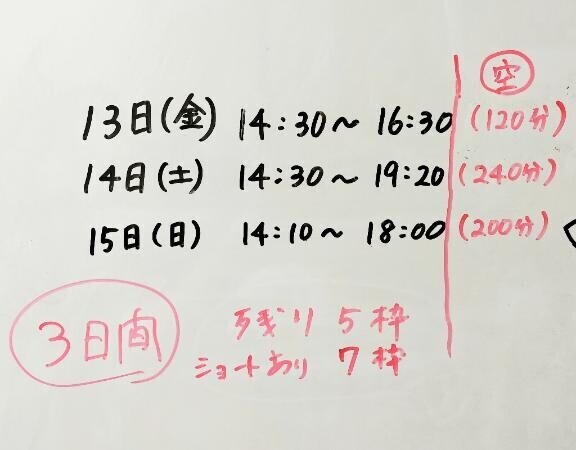 空
13日(金) 14:30～16:30 (120分)
14日(土) 14:30～19:20 (240分)
15日(日) 14:10～18:00 (200分)
3日間
残り 5枠
ショートあり 7枠